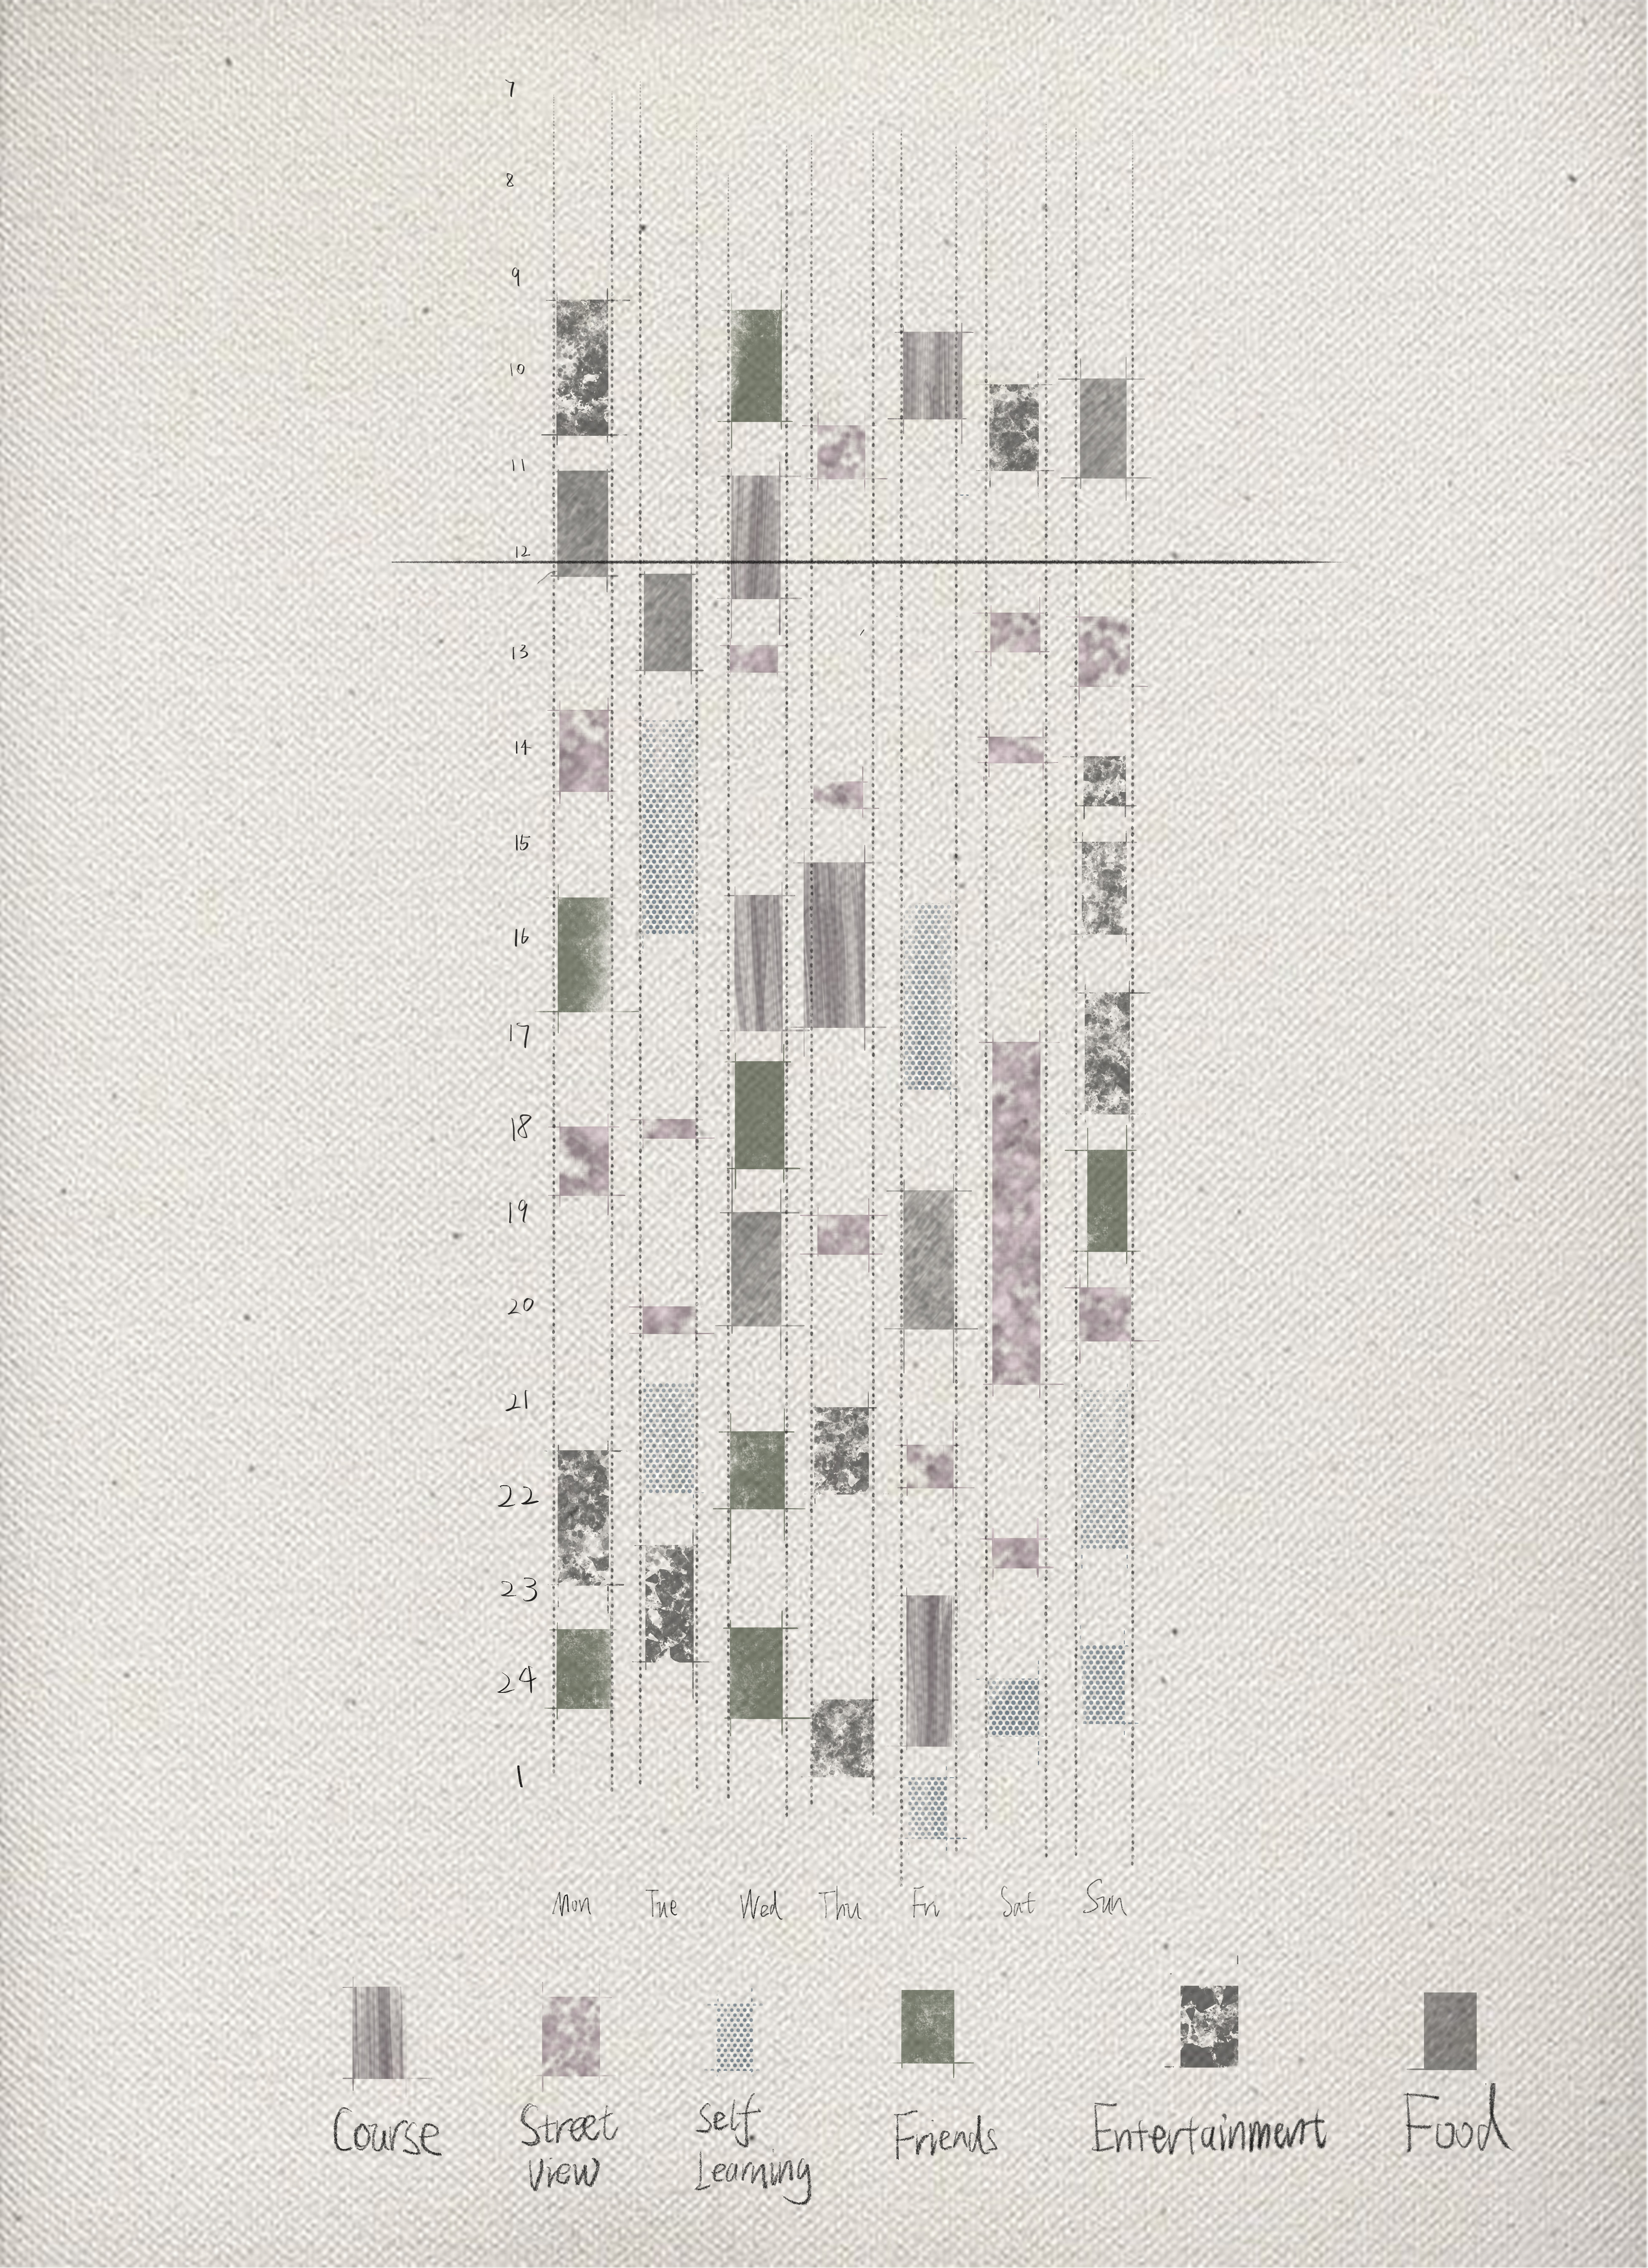 7
8
9
10
11
12
13
14
15
16
17
18
19
20
21
22
23
24
1
Mon Tue Wed Thu Fri Sat Sun
Course Street View Self Learning Friends Entertainment Food